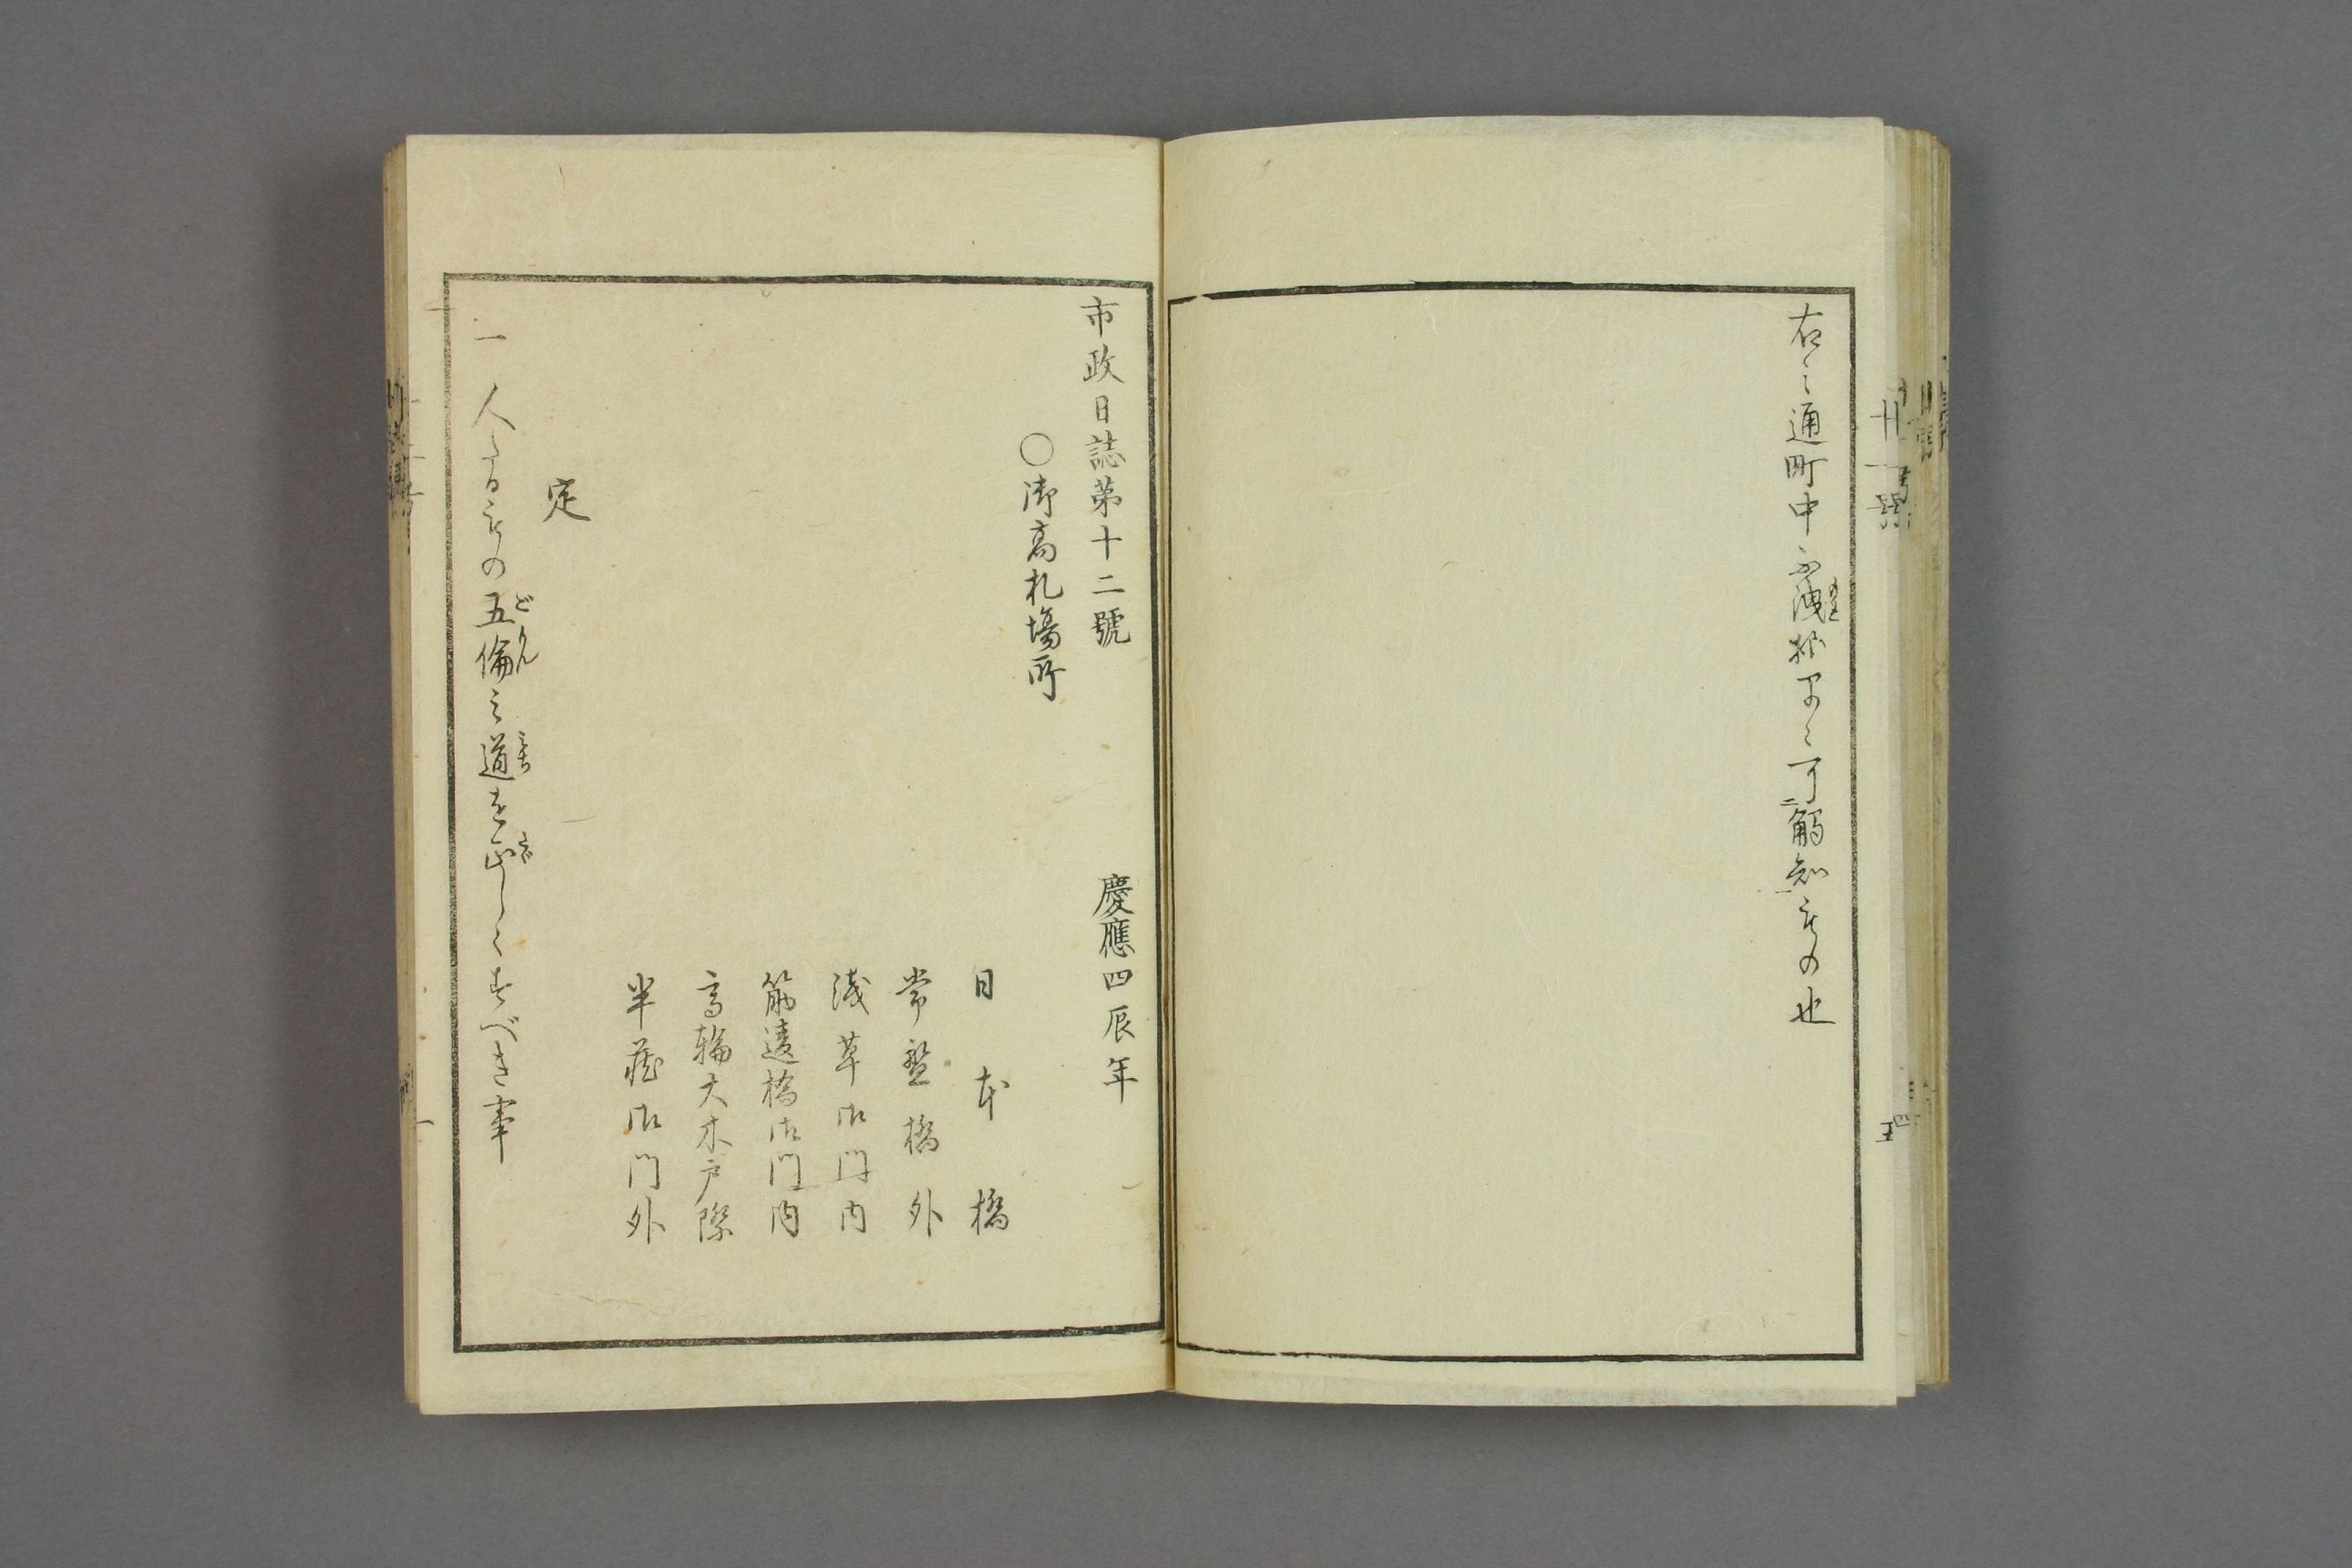 右之通町中不洩樣早々可觸知もの也
市政日誌第十二號 慶應四辰年
○御高札場所
日本橋
常盤橋外
淺草御門内
筋違橋御門内
高輪大木戸際
半藏御門外
定
一 人たるもの五倫之道を正しくすべき事